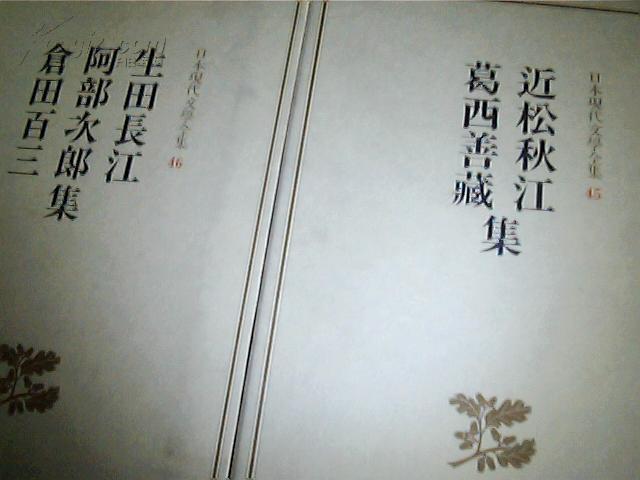 日本現代文學全集 45
近松秋江
葛西善藏
集
日本現代文學全集 46
生田長江
阿部次郎集
倉田百三